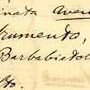 inata Aven
trumento,
Barbabietol
to.